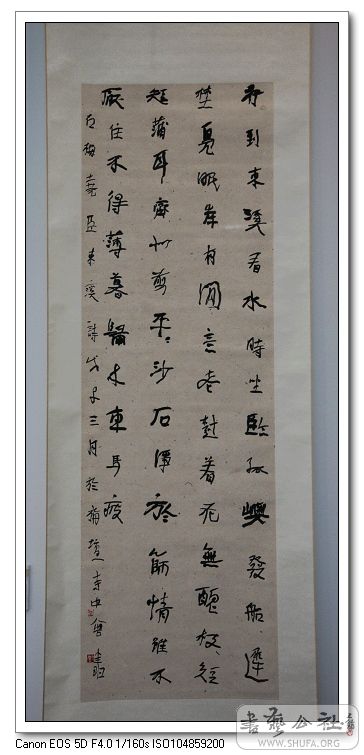 行到東溪看水時坐臨孤嶼發船遲
埜鳧眠岸有閒意老樹着花無醜枝短
短蒲耳齊似剪平々沙石淨於篩情雖不
厭住不得薄暮歸來車馬疲
右梅堯臣東溪詩戊子三月於
Canon EOS 5D F4.0 1/160s ISO104859200
書藝公社
WWW.SHUFA.ORG